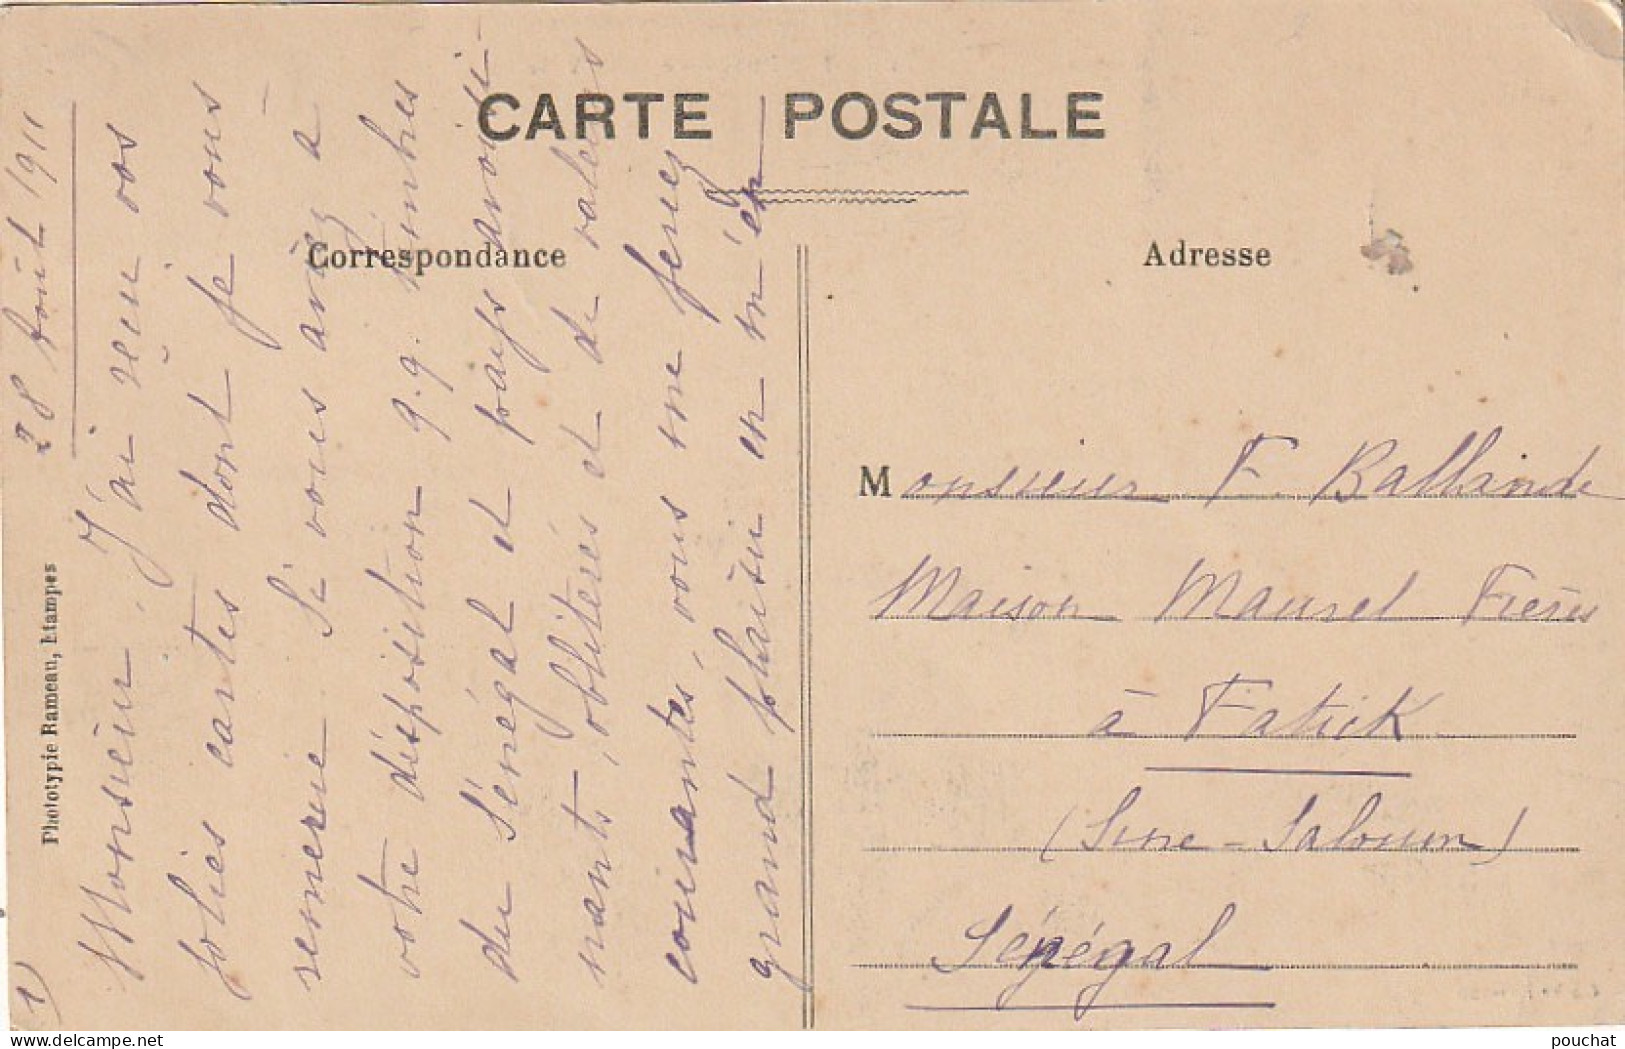 CARTE POSTALE
Correspondance
Adresse
Phototypie Rameau, Etampes
1)
28 Août 1911
Monsieur, J'ai reçu vos
jolies cartes dont je vous
remercie. Si vous avez à
votre disposition q.q. timbres
du Sénégal et pays avoisi-
nants, oblitérés et de valeurs
courantes, vous me ferez
grand plaisir en m'en
Monsieur F. Ballande
Maison Maurel Frères
à Fatick
(Sine-Saloum)
Sénégal
pouchat
delcampe.net